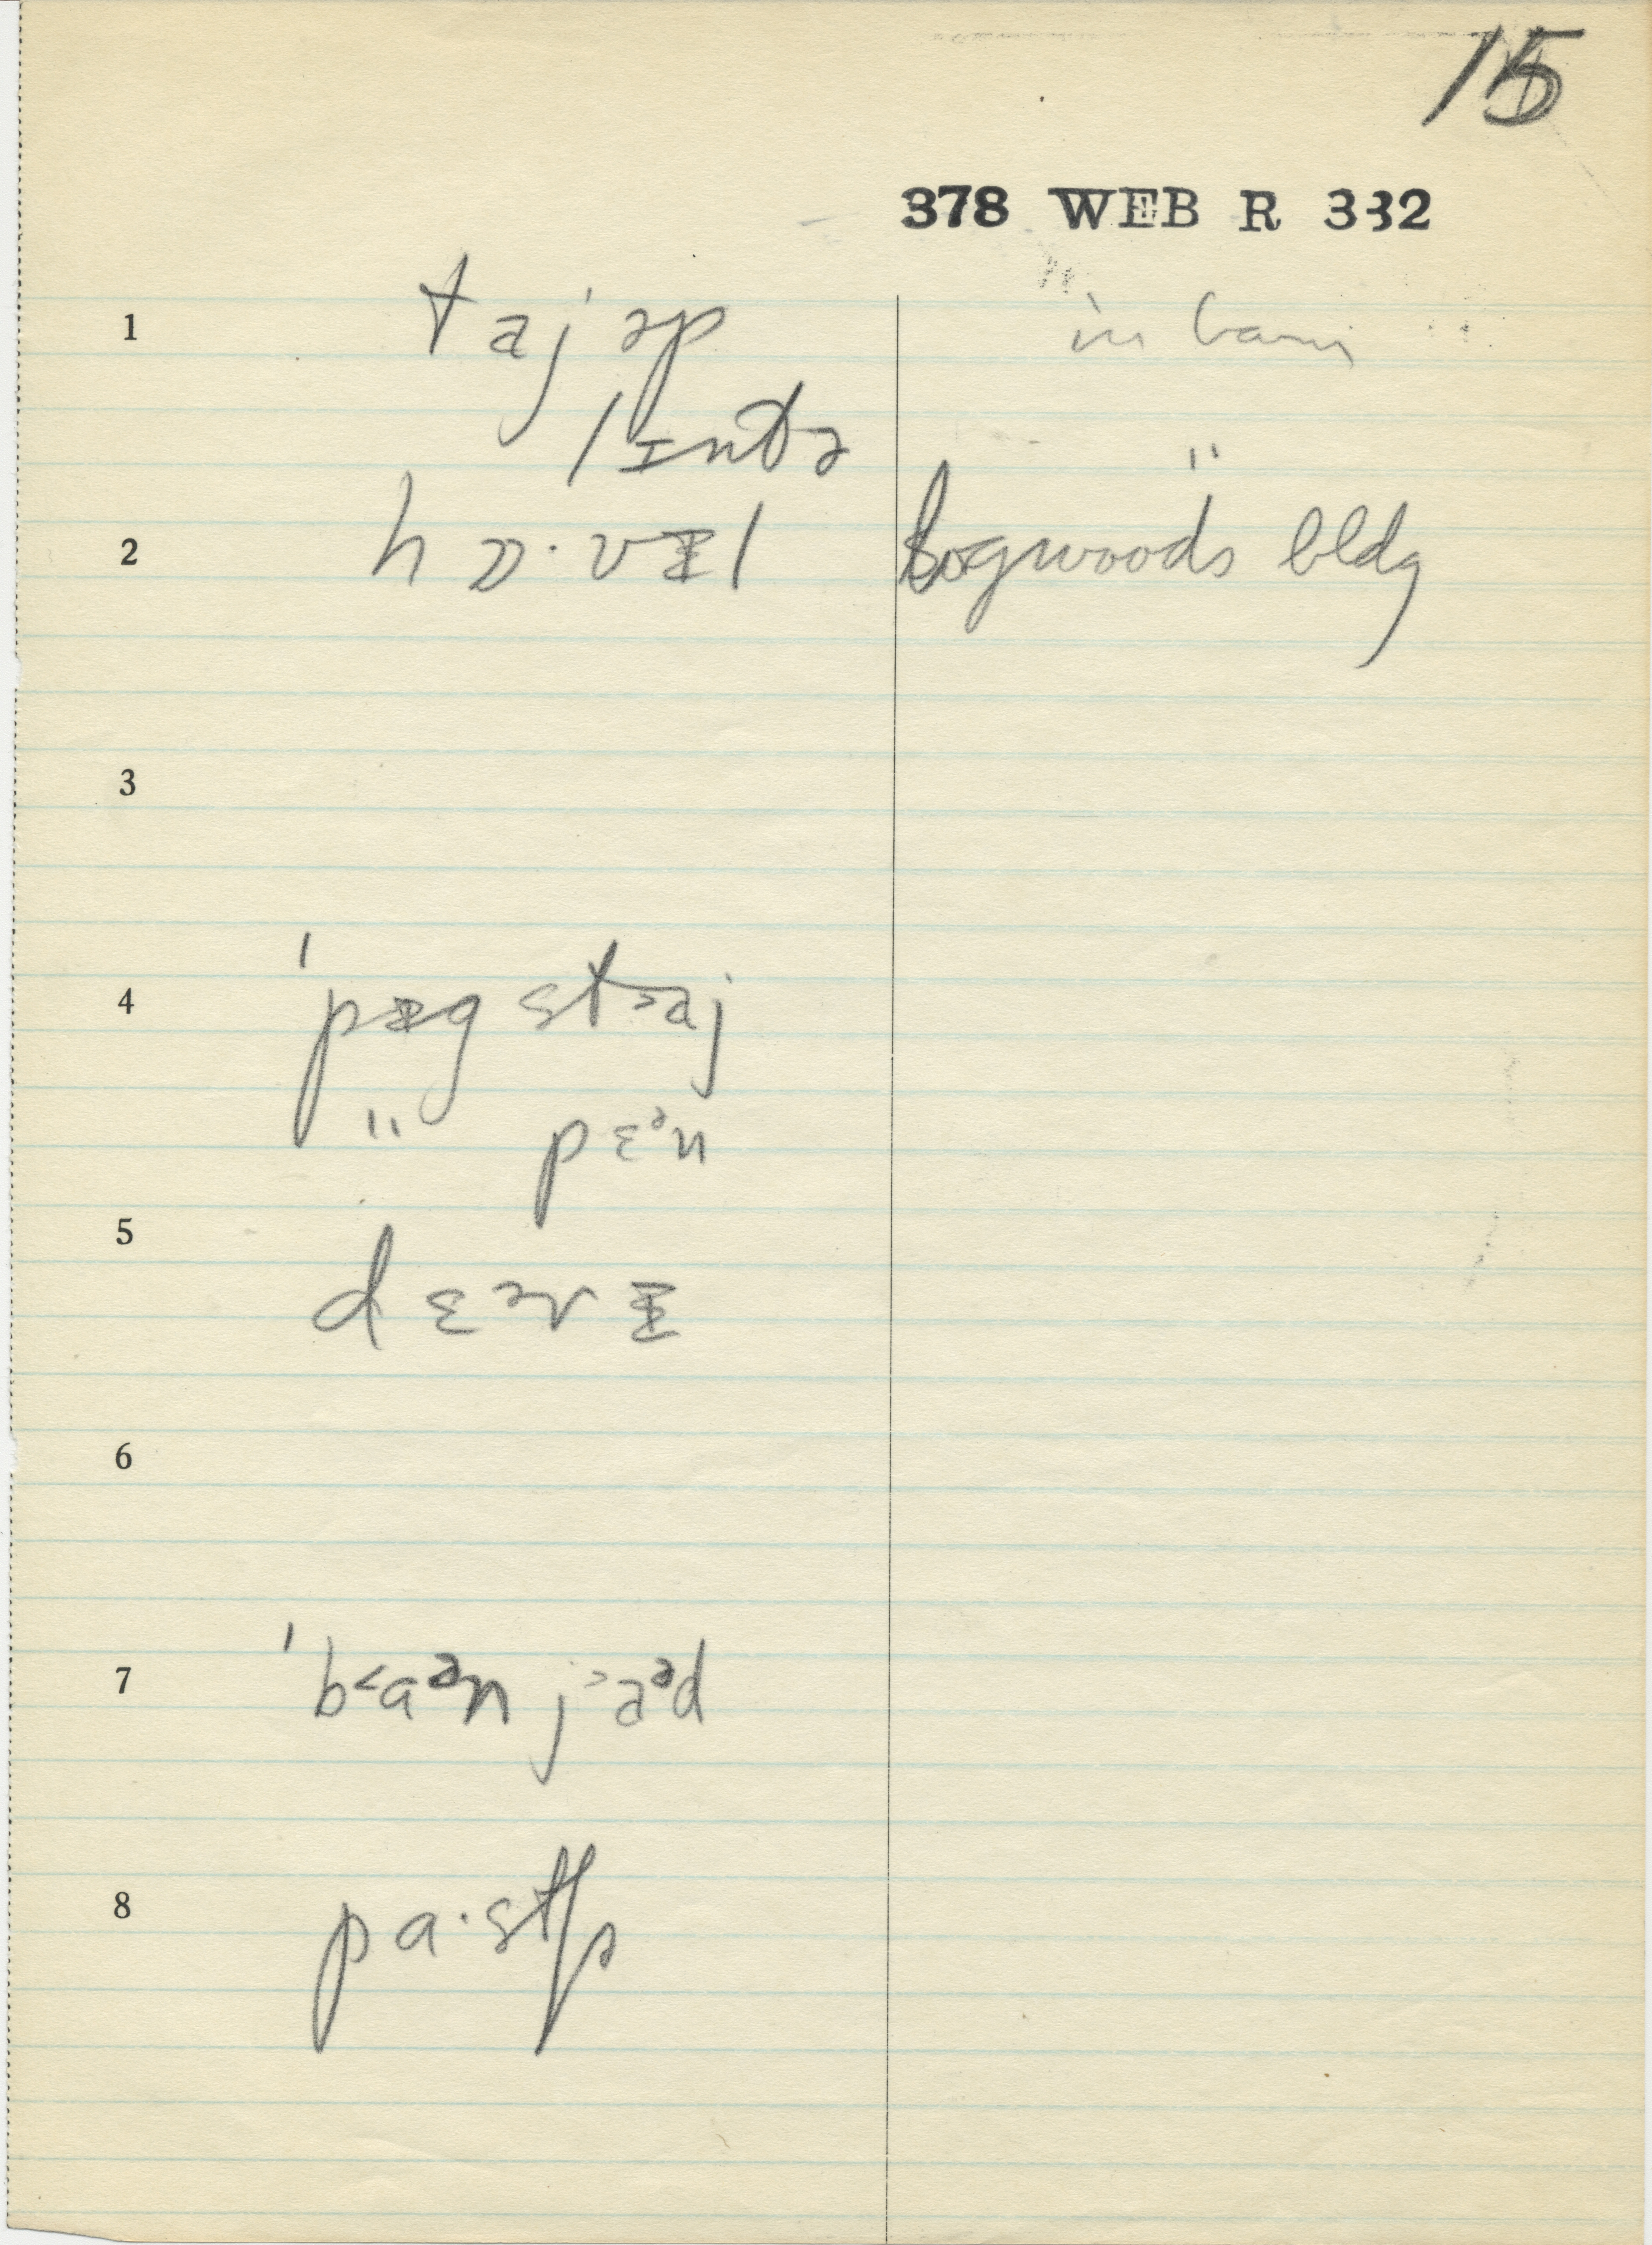 15
378 WEB R 332
1 taj əp in barn
lɪntə
2 hɒ·vɪl bogwoods bldg
3
4 ˈpɪg staj
" pɛᵊn
5 dɛərɪ
6
7 ˈbaᵊn jaᵊd
8 pa·stʃə